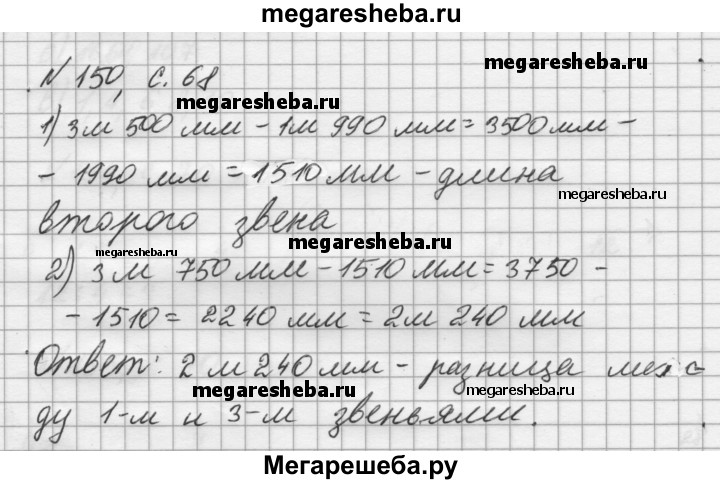 megaresheba.ru
N 150, с. 68
megaresheba.ru
megaresheba.ru
1) 3м 500 мм - 1м 990 мм = 3500 мм -
- 1990 мм = 1510 мм - длина
megaresheba.ru
второго звена
megaresheba.ru
megaresheba.ru
2) 3м 750 мм - 1510 мм = 3750 -
- 1510 = 2240 мм = 2м 240 мм
Ответ: 2 м 240 мм - разница меж-
megaresheba.ru
megaresheba.ru
ду 1-м и 3-м звеньями.
Мегарешеба.ру